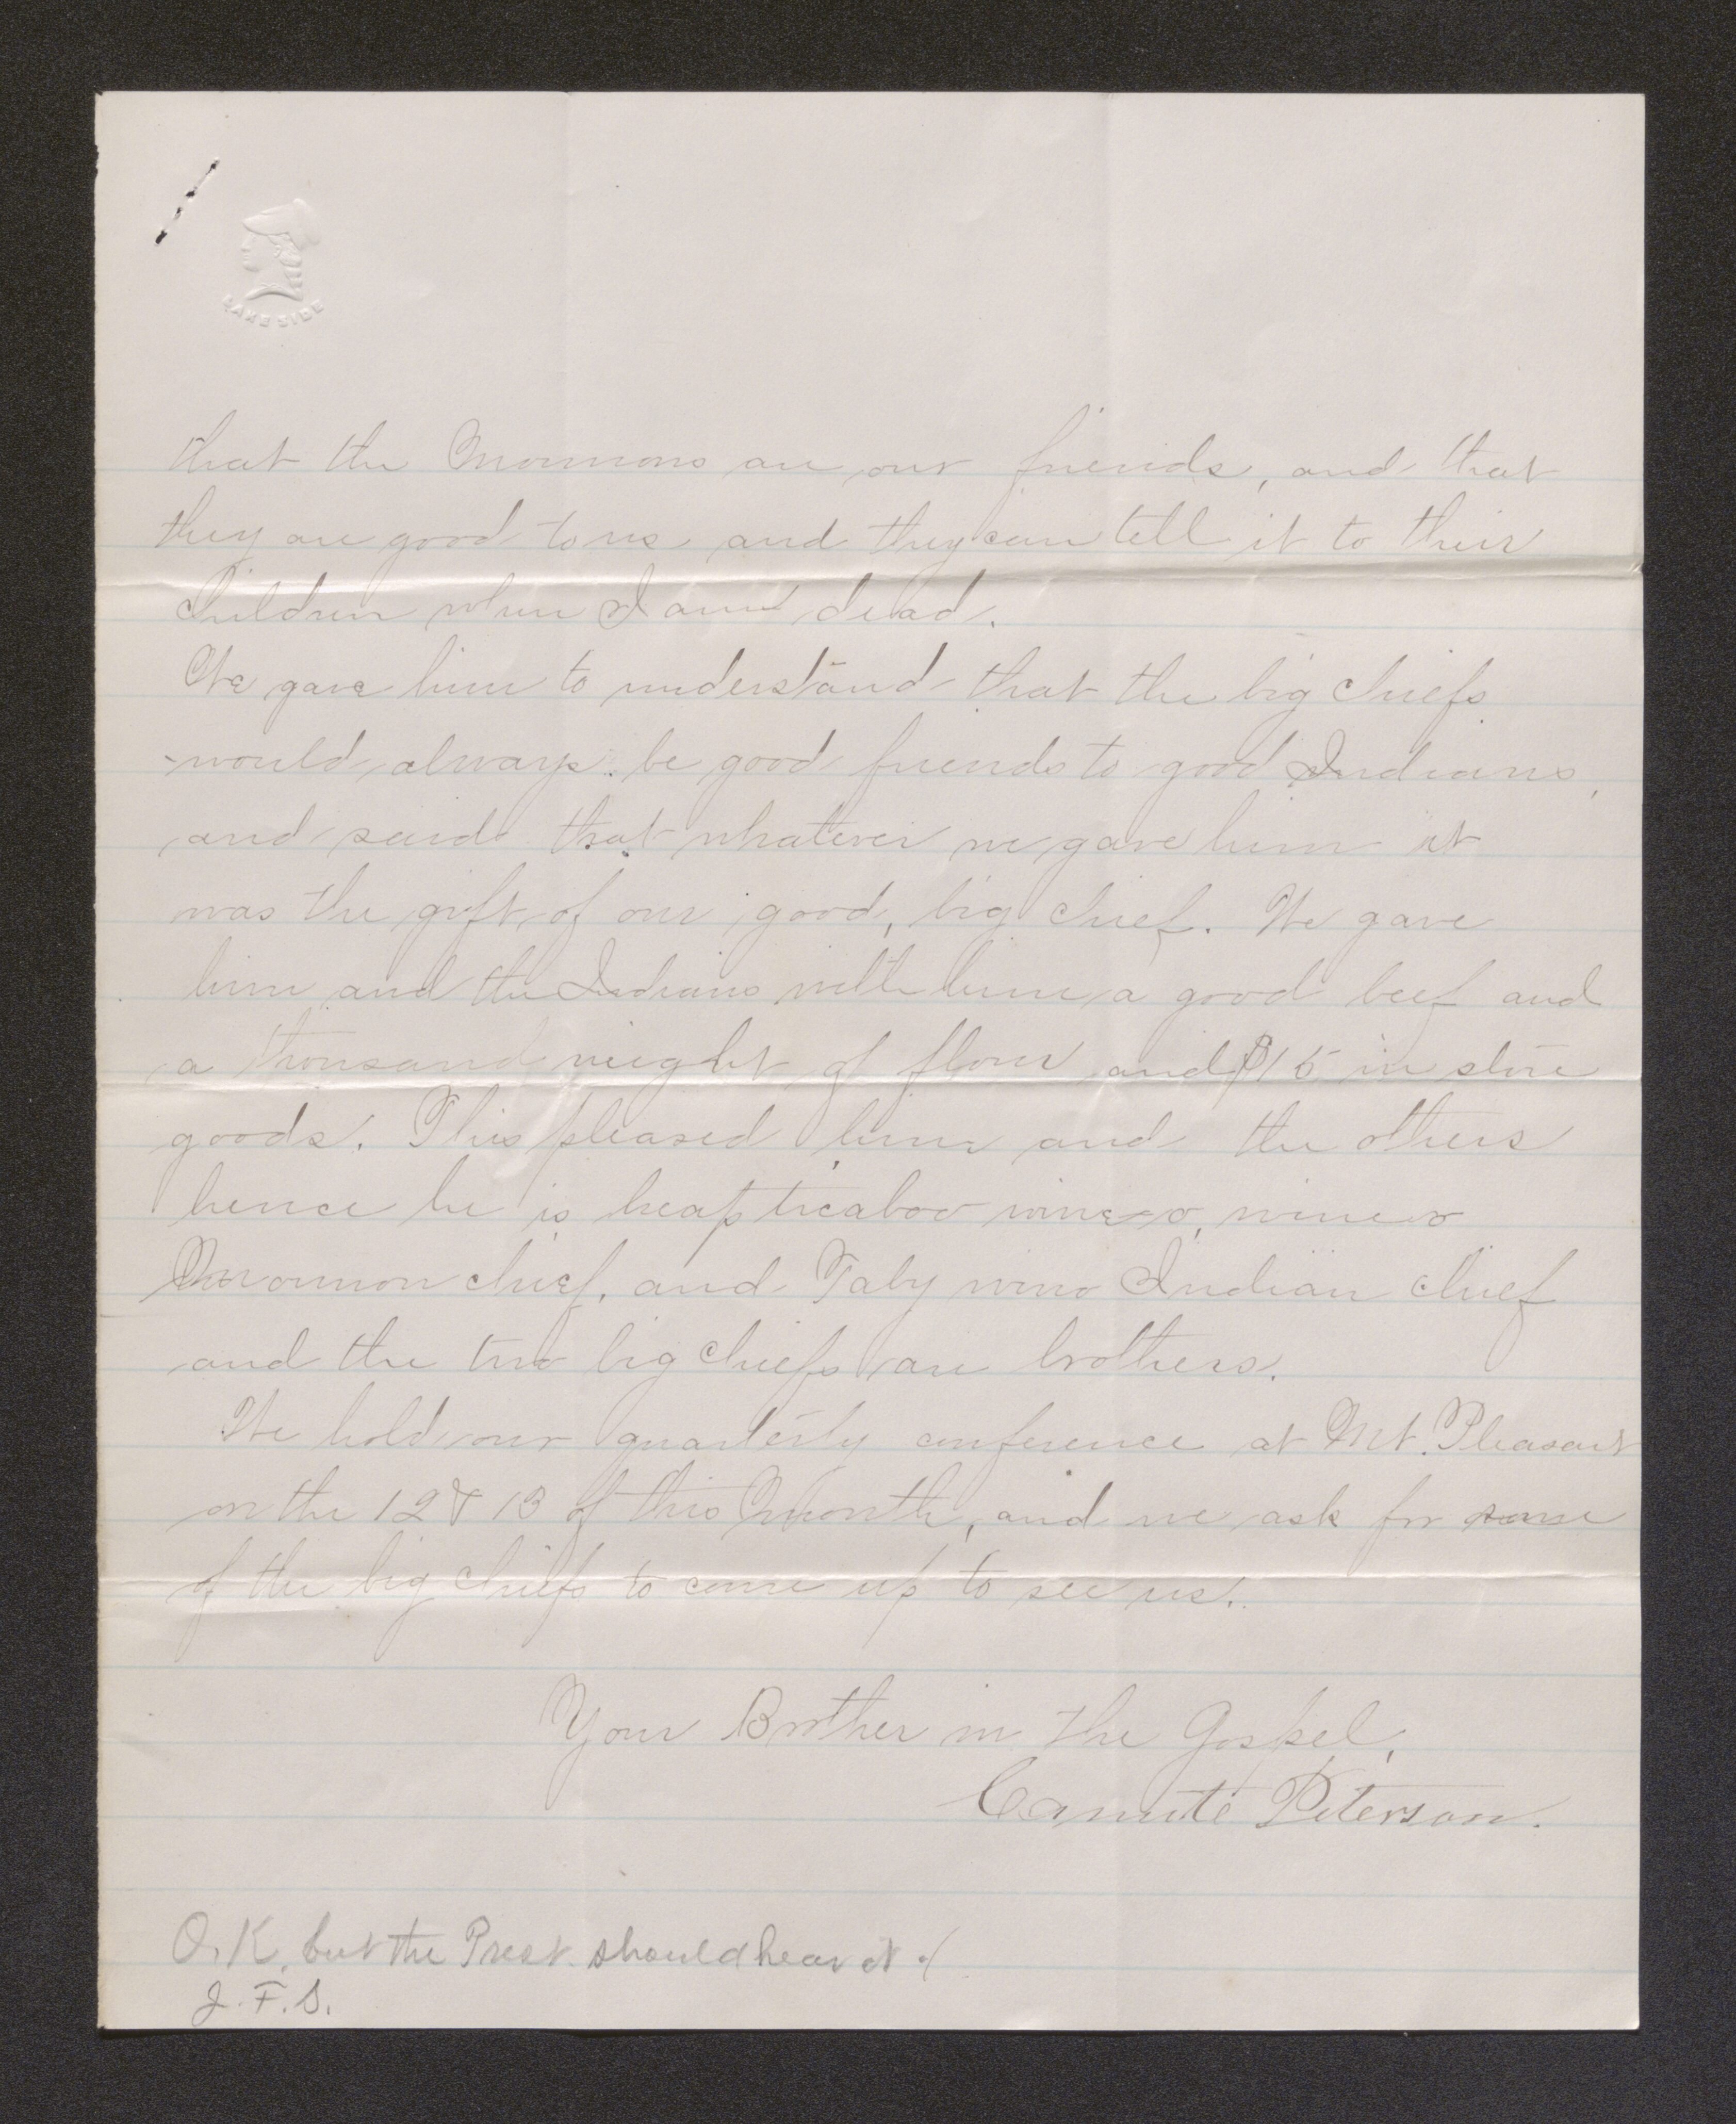 LAKE SIDE
that the Mormons are our friends, and that
they are good to us and they can tell it to their
children when I am dead.
We gave him to understand that the big chiefs
would always be good friends to good Indians,
and said that whatever we gave him it
was the gift of our good, big chief. We gave
him and the Indians with him a good beef and
a thousand weight of flour and $15 in store
goods. This pleased him and the others
hence he is heap ticaboo wino, wino
Mormon chief, and Taby wino Indian chief
and the two big chiefs are brothers.
We hold our quarterly conference at Mt. Pleasant
on the 12 & 13 of this Month, and we ask for some
of the big chiefs to come up to see us.
Your Brother in the Gospel,
Canute Peterson.
O.K. but the Prest. should hear it
J. F. S.